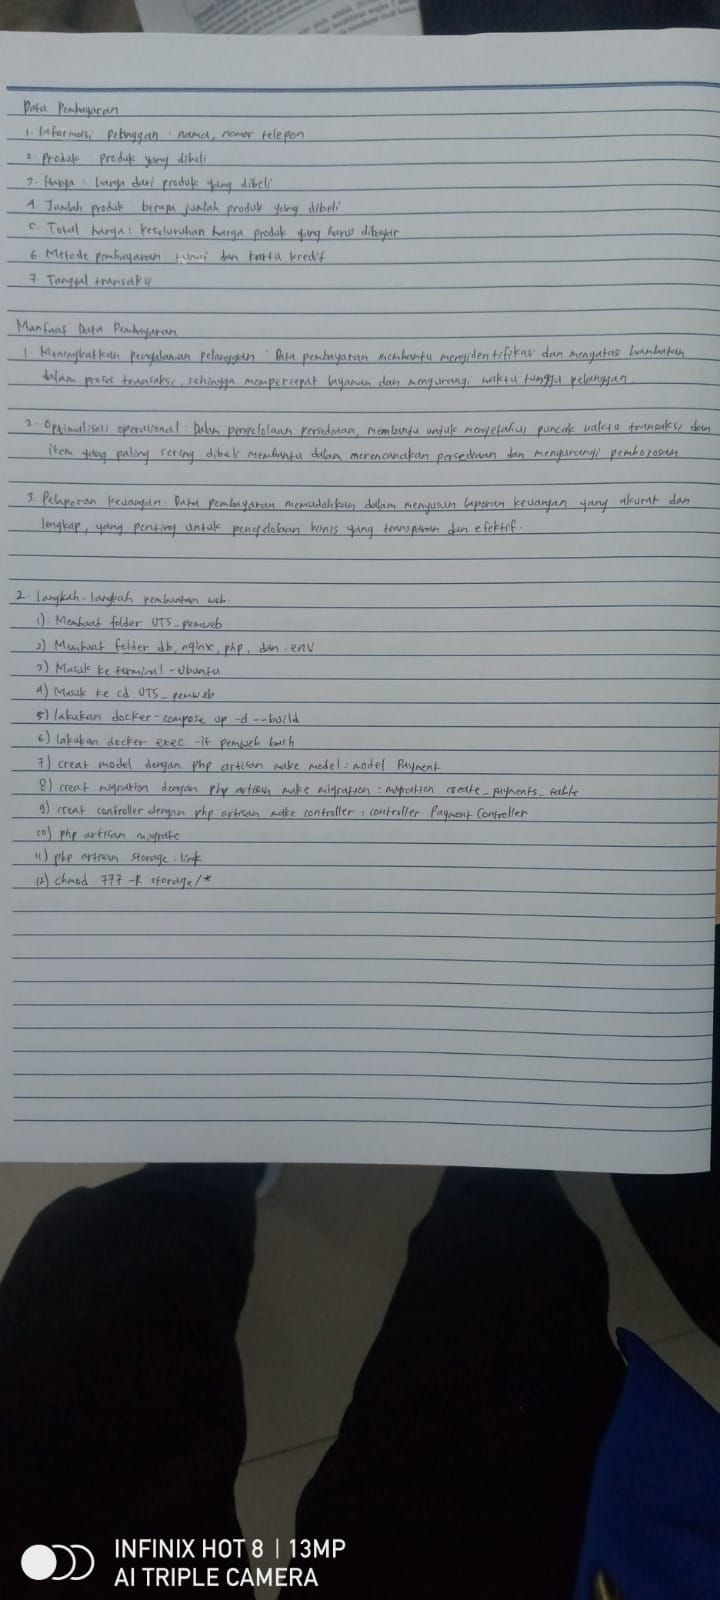 Data Pembayaran
1. Informasi pelanggan : nama, nomor telepon
2. Produk : produk yang dibeli
3. Harga : harga dari produk yang dibeli
4. Jumlah produk : berapa jumlah produk yang dibeli
5. Total harga : keseluruhan harga produk yang harus dibayar
6. Metode pembayaran tunai dan kartu kredit
7. Tanggal transaksi
Manfaat Data Pembayaran
1. Meningkatkan pengalaman pelanggan : Data pembayaran membantu mengidentifikasi dan mengatasi hambatan
dalam proses transaksi, sehingga mempercepat layanan dan mengurangi waktu tunggu pelanggan.
2. Optimalisasi operasional : Dalam pengelolaan persediaan, membantu untuk mengetahui puncak waktu transaksi dan
item yang paling sering dibeli membantu dalam merencanakan persediaan dan mengurangi pemborosan
3. Pelaporan keuangan : Data pembayaran memudahkan dalam menyusun laporan keuangan yang akurat dan
lengkap, yang penting untuk pengelolaan bisnis yang transparan dan efektif.
2. langkah-langkah pembuatan web.
1). Membuat folder UTS_pemweb
2) Membuat folder db, nginx, php, dan .env
3) Masuk ke terminal - Ubuntu
4) Masuk ke cd UTS_pemweb
5) lakukan docker-compose up -d --build
6) lakukan docker exec -it pemweb bash
7) creat model dengan php artisan make model : model Payment
8) creat migration dengan php artisan make migration : migration create_payments_table
9) creat controller dengan php artisan make controller : controller Payment Controller
10) php artisan migrate
11) php artisan storage : link
12) chmod 777 -R storage/*
INFINIX HOT 8 | 13MP
AI TRIPLE CAMERA